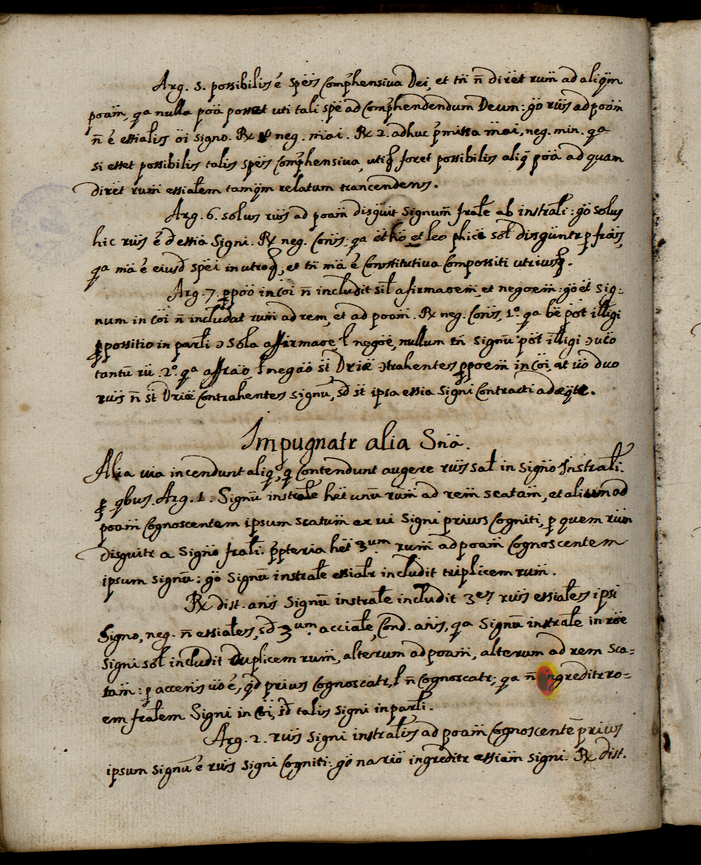 Arg. 5. possibilis ē spēs Comp̄hensiva Dei, et tn̄ n̄ diret rum̄ ad aliqm̄
poam̄, qa nulla poā posset uti tali spē ad Comp̄hendendum Deum: gō rūs ad poam̄
n̄ ē essialis oī signo. Rx neg. mai. Rx 2. adhuc p̄missa mai, neg. min. qa
si esset possibilis talis spēs Comp̄hensiva, utiq foret possibilis aliq poā ad quam
diret rum̄ essialem tamqm̄ relatum trancendens.
Arg. 6. solus rūs ad poam̄ disguit signum frāle ab instrāli: gō solus
hic rūs ē d essia Signi. Rx neg. Coniis: qa et hō, et leo phicē sol̄ disguntr p frās,
qa mā ē eiusd spēi in utroq, et tn̄ mā ē Constitutiva Compossiti utriusq.
Arg. 7. ppoō in coī n̄ includit sil̄ afirmaoem, et negoem: gō et sig-
num in coī n̄ includat rum̄ ad rem, et ad poam̄. Rx neg. Coniis, 1.º qa bē pōt illigi
ppossitio in parli ɔ sola affirmaoe, l negoē, nullum tn̄ signū pōt illigi ɔ uīco
tantū rū. 2.º qa affraō l negaō st̄ Driæ ɔtrahentes ppoem̄ in coī, at uō duo
rūs n̄ st̄ Driæ Contrahentes signū, sd st̄ ipsa essia signi Contracti adæqte.
Impugnatr alia Snā.
Alia via incendunt aliq, q Contendunt augere rūs sal̄t in signō Instrāli.
p qbus Arg. 1. Signū instrāle het unū rum̄ ad rem scatam̄, et alium ad
poam̄ Cognoscentem ipsum scatum ex vi Signi prius Cogniti, p quem rum̄
disguitr a Signo frāli. p̄pteria het 3um rum̄ ad poam̄ Cognoscentem
ipsum signū: gō Signū instrāle essialr includit triplicem rum̄.
Rx dist. ans̄ Signū instrāle includit 3es rūs essiales ipsi
Signo, neg. n̄ essiales, sd 3um acciale, Cond. ans̄, qa Signū instrāle in rōe
Signi sol̄ includit duplicem rum̄, alterum ad poam̄, alterum ad rem sca-
tam̄: p accens uō ē, qd prius Cognoscatr, l n̄ Cognoscatr; qa n̄ ingreditr ro-
em frālem Signi in Coī, sd talis signi in parli.
Arg. 2. rūs Signi instrālis ad poam̄ Cognoscentē prius
ipsum signū ē rūs signi Cogniti: gō na riō ingreditr essiam signi. Rx dist.